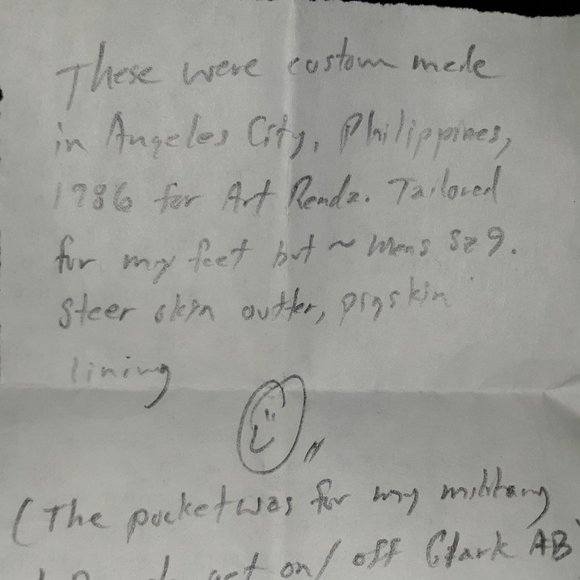 These were custom made
in Angeles City, Philippines,
1986 for Art Renda. Tailored
for my feet but ~ Mens sz 9.
Steer skin outter, pigskin
lining
(The pocket was for my military
get on/off Clark AB